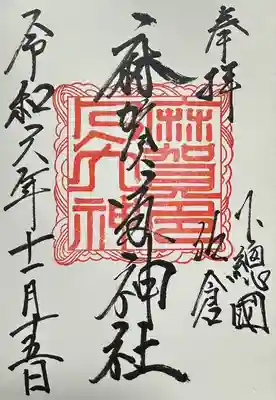 奉拝
下總國
佐倉
麻賀多神社
令和六年十一月十五日
麻賀多